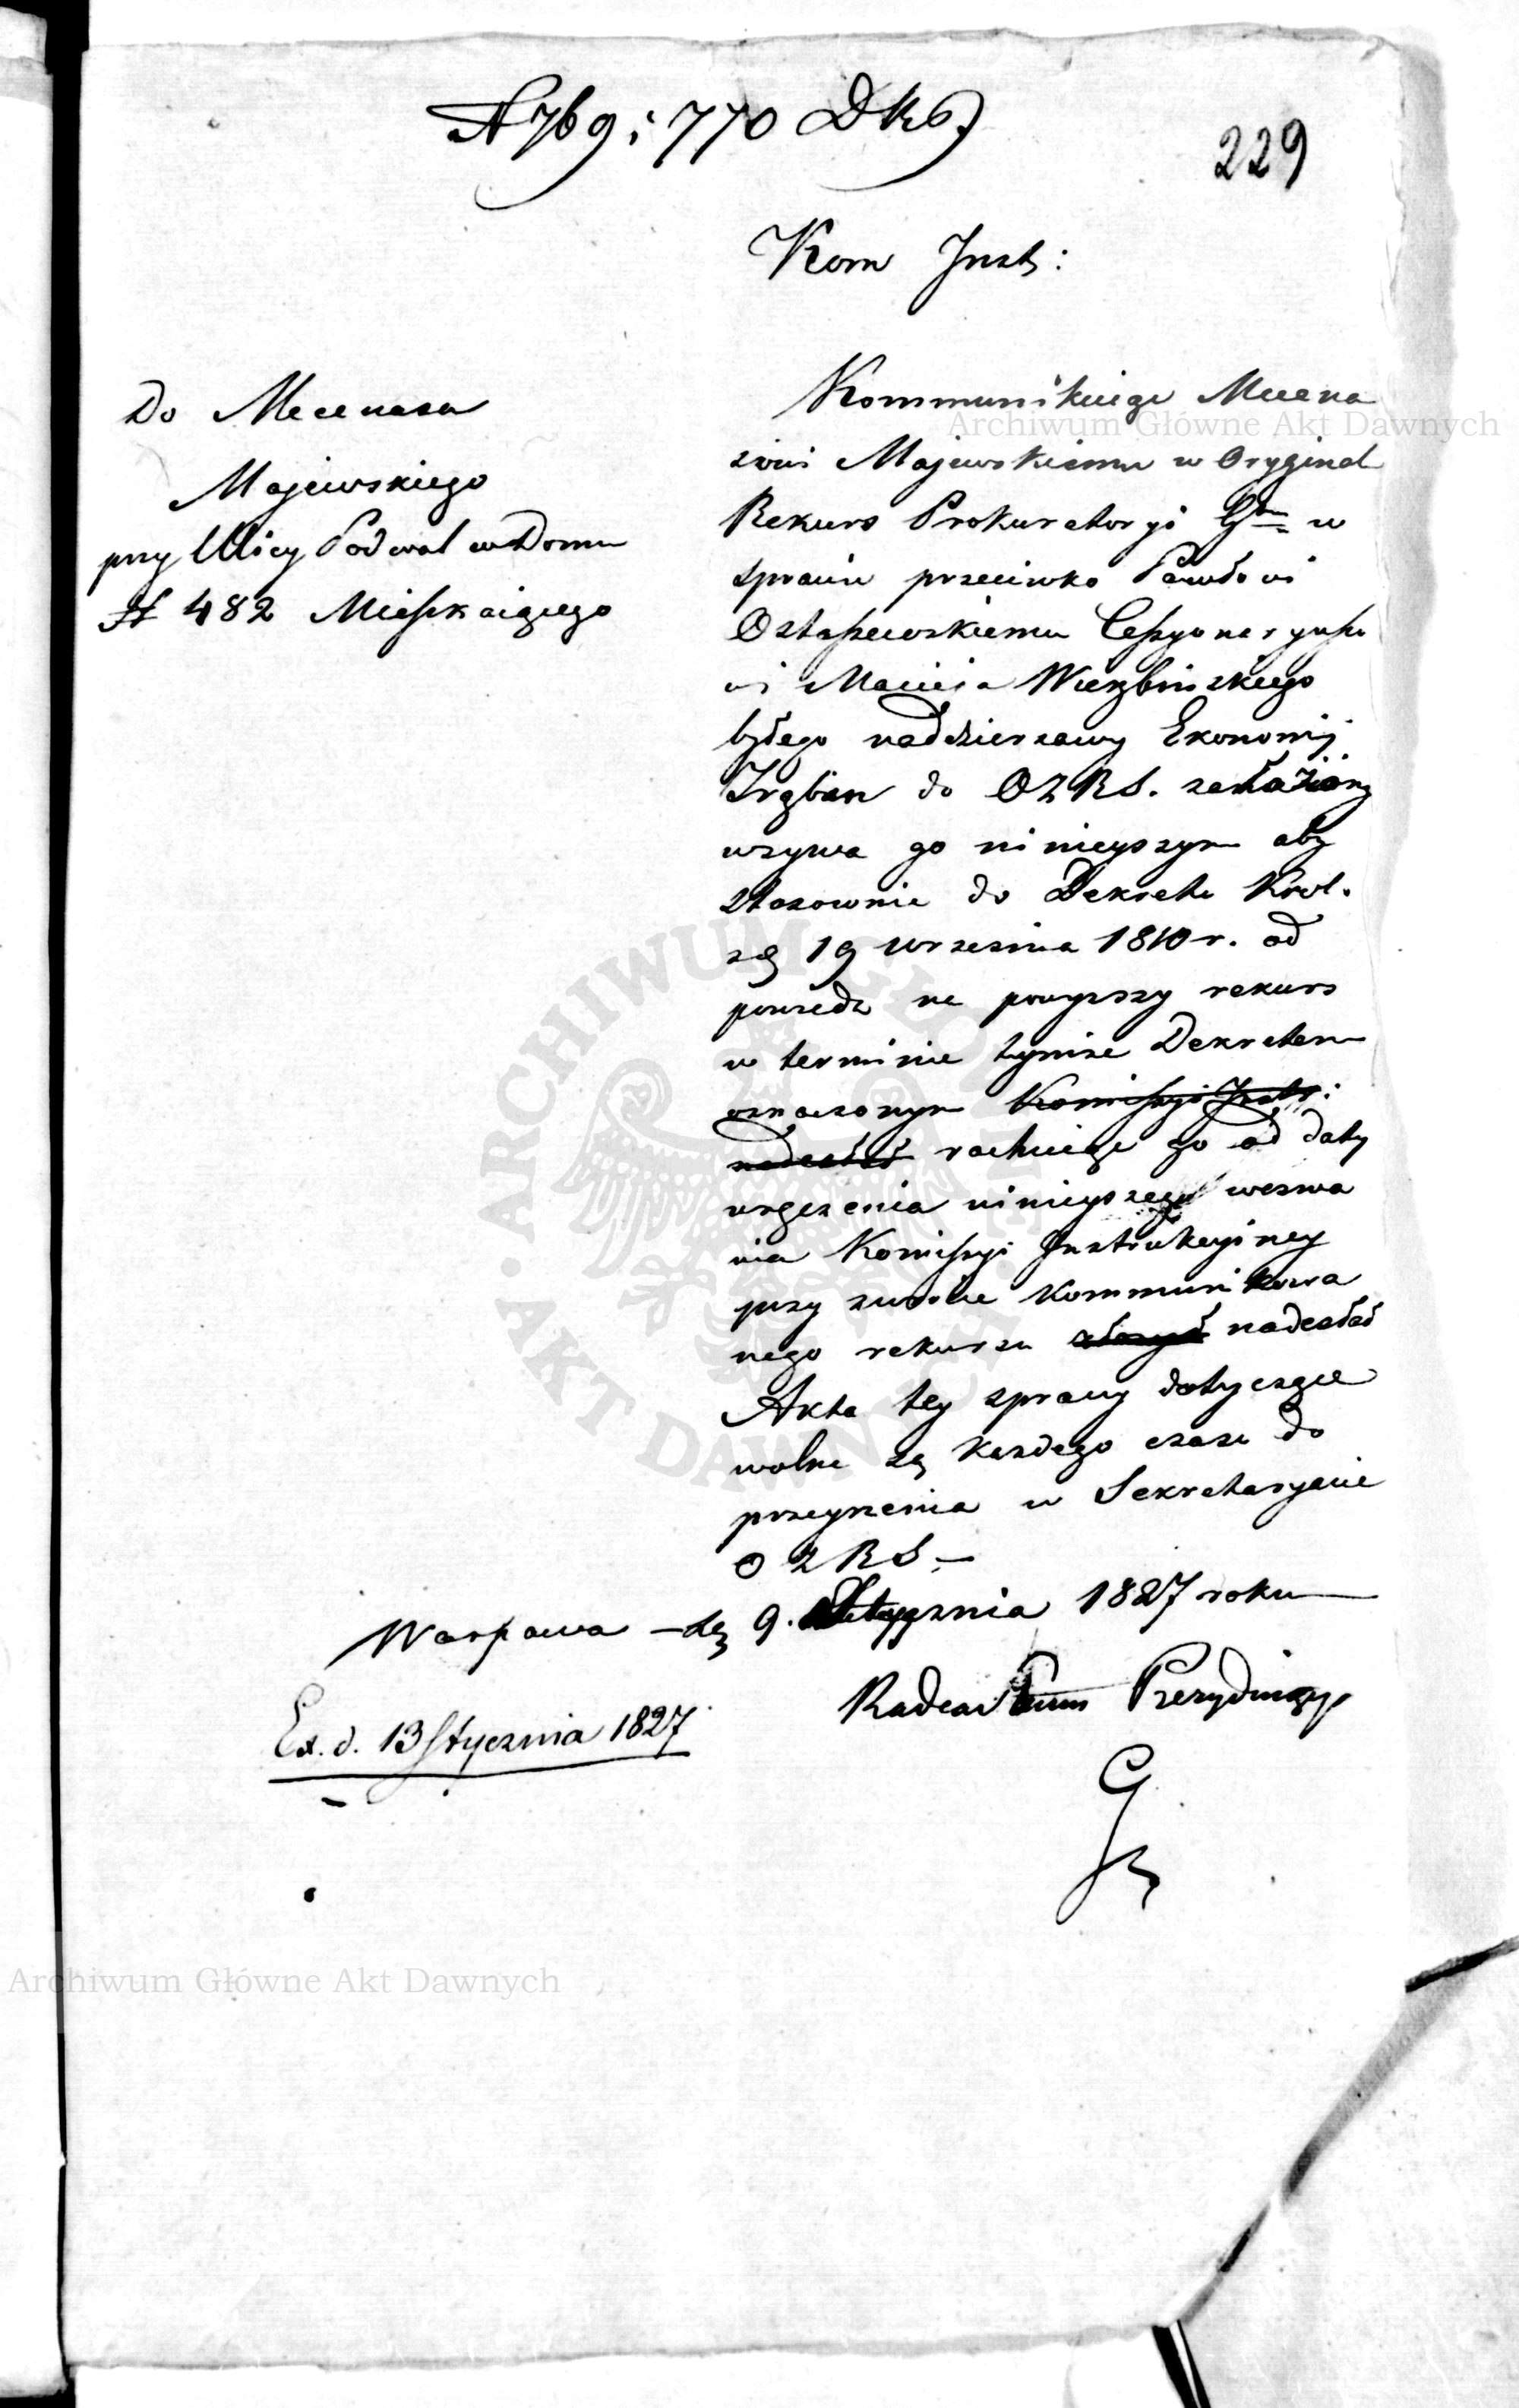 N 769 i 770 DKS
229
Kom Inst:
Do Mecenasa
Majewskiego
przy Ulicy Podwal w Domu
N 482 Mieszkaiącego
Kommunikuiąc Mecena
sowi Majewskiemu w Oryginale
Rekurs Prokuratoryi Gln w
sprawie przeciwko Pawłowi
Ostaszewskiemu Cessyonaryuszo
wi Macieia Wierzbińskiego
byłego naddzierżawcy Ekonomij
Trąbin do OZRS. założony
wzywa go ninieyszym aby
stosownie do Dekretu Król.
z dnia 19 Września 1810 r. od
powiedź na powyższy rekurs
w terminie tymże Dekretem
oznaczonym Komissyi Instr:
nadesłał rachuiąc go od daty
wręczenia ninieyszego wezwa
nia Komissyi Instrukcyiney
przy zwrocie kommunikowa
nego rekursu złożył nadesłał
Akta tey sprawy dotyczące
wolne są każdego czasu do
przeyrzenia w Sekretaryacie
OZRS –
Warszawa – d. 9. Stycznia 1827 roku
Radca Stanu Prezyduiący
Ex. d. 13 Stycznia 1827
Archiwum Główne Akt Dawnych
ARCHIWUM GŁÓWNE • AKT DAWNYCH •
Archiwum Główne Akt Dawnych